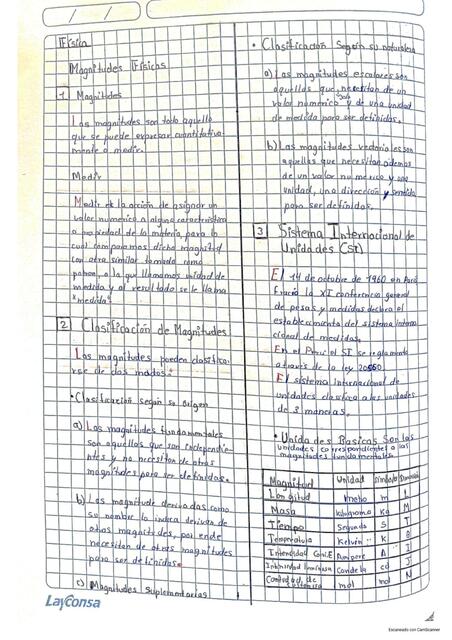 Física
Magnitudes Físicas
1 Magnitudes
Las magnitudes son todo aquello
que se puede expresar cuantitativa-
mente o medir.
Medir
Medir es la acción de asignar un
valor numerico a alguna caracteristica
o propiedad de la materia, para lo
cual comparamos dicha magnitud
con otra similar tomada como
patron, a la que llamamos unidad de
medida y al resultado se le llama
"medida"
2 Clasificación de Magnitudes
Las magnitudes pueden clasifica-
rse de dos modos:
• Clasificación según su origen
a) Las magnitudes fundamentales
son aquellas que son independie-
ntes y no necesitan de otras
magnitudes para ser definidas.
b) Las magnitude derivadas como
su nombre lo indica derivan de
otras magnitudes, por ende
necesitan de otras magnitudes
para ser definidas.
c) Magnitudes Suplementarias
LayConsa
• Clasificación Según su naturaleza
a) Las magnitudes escalares son
aquellas que necesitan de un
solo
valor numerico y de una unidad
de medida para ser definidas.
b) Las magnitudes vectoriales son
aquellas que necesitan ademas
de un valor numerico y una
unidad, una dirección y sentido
para ser definidas.
3 Sistema Internacional de
Unidades (SI)
El 14 de octubre de 1960 en París
Francia la XI conferencia general
de pesas y medidas declara el
establecimiento del sistema interna
cional de medidas.
En el Perú el SI se reglamenta
através de la ley 20560
El sistema internacional de
unidades clasifica a las unidades
de 3 maneras.
• Unidades Basicas Son las
unidades correspondientes a las
magnitudes fundamentales.
Magnitud Unidad Simbolo Dimensión
Longitud metro m L
Masa kilogramo Kg M
Tiempo Segundo S T
Temperatura Kelvin K
Intensidad Corri.E Ampere A I
Intensidad luminosa Candela cd J
Cantidad de
sustancia mol mol N
Escaneado con CamScanner